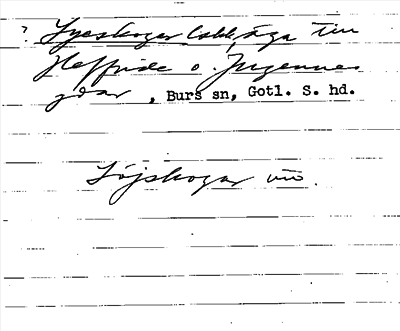 ? Lyeskoger lokk, äga till
Haffride o. Jurgennes
gdar, Burs sn, Gotl. S. hd.
Löjskogar